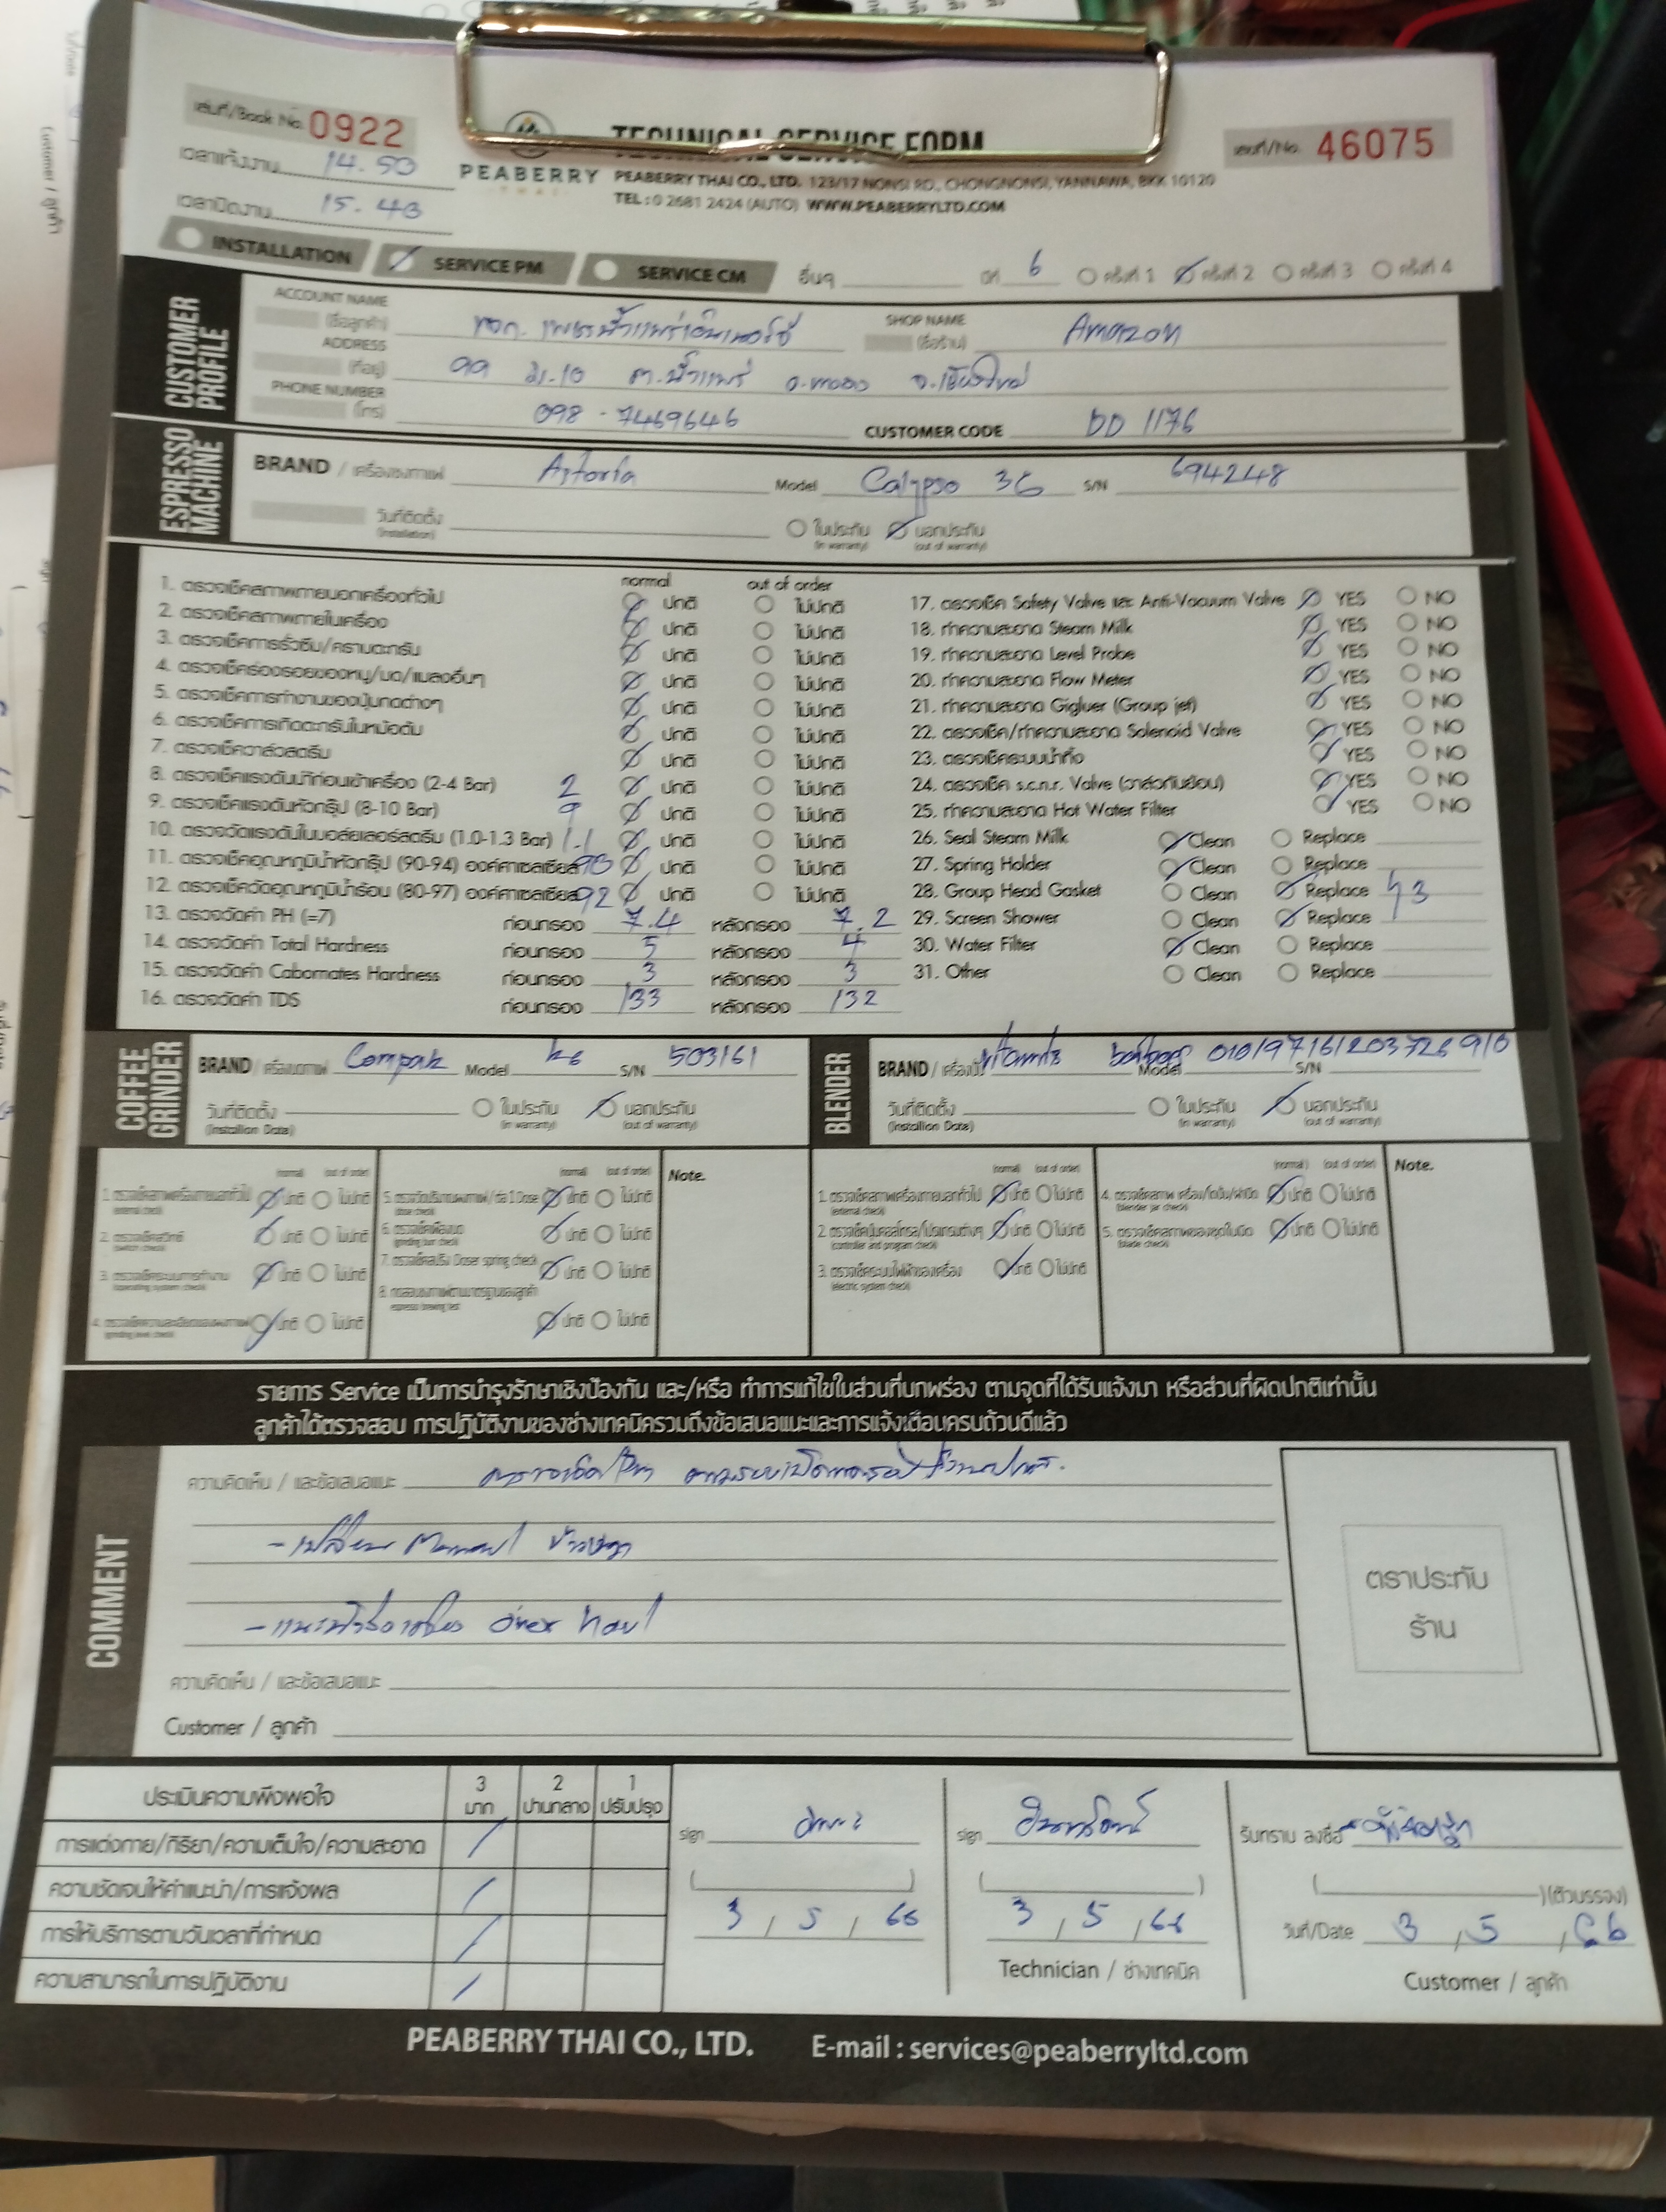 เล่มที่/Book No. 0922
TECHNICAL SERVICE FORM
เลขที่/No. 46075
เวลาแจ้งงาน 14.50
PEABERRY THAI
PEABERRY THAI CO., LTD. 123/17 NONSI RD., CHONGNONSI, YANNAWA, BKK 10120
เวลาปิดงาน 15.40
TEL : 0 2681 2424 (AUTO) WWW.PEABERRYLTD.COM
INSTALLATION SERVICE PM SERVICE CM อื่นๆ ปีที่ 6 ครั้งที่ 1 ครั้งที่ 2 ครั้งที่ 3 ครั้งที่ 4
CUSTOMER PROFILE
ACCOUNT NAME (ชื่อลูกค้า) หจก. เพชรน้ำแพร่เอ็นเนอร์จี้ SHOP NAME (ชื่อร้าน) Amazon
ADDRESS (ที่อยู่) 99 ม.10 ต.น้ำแพร่ อ.หางดง จ.เชียงใหม่
PHONE NUMBER (โทร) 098-7469646 CUSTOMER CODE DD 1176
ESPRESSO MACHINE
BRAND / เครื่องชงกาแฟ Astoria Model Calypso 3G S/N 694248
วันที่ติดตั้ง (Installation) ในประกัน (in warranty) นอกประกัน (out of warranty)
normal out of order
1. ตรวจเช็คสภาพภายนอกเครื่องทั่วไป ปกติ ไม่ปกติ
2. ตรวจเช็คสภาพภายในเครื่อง ปกติ ไม่ปกติ
3. ตรวจเช็คการรั่วซึม/คราบตะกรัน ปกติ ไม่ปกติ
4. ตรวจเช็คร่องรอยของหนู/มด/แมลงอื่นๆ ปกติ ไม่ปกติ
5. ตรวจเช็คการทำงานของปุ่มกดต่างๆ ปกติ ไม่ปกติ
6. ตรวจเช็คการเกิดตะกรันในหม้อต้ม ปกติ ไม่ปกติ
7. ตรวจเช็ควาล์วสตรีม ปกติ ไม่ปกติ
8. ตรวจเช็คแรงดันน้ำก่อนเข้าเครื่อง (2-4 Bar) 2 ปกติ ไม่ปกติ
9. ตรวจเช็คแรงดันหัวกรุ๊ป (8-10 Bar) 9 ปกติ ไม่ปกติ
10. ตรวจวัดแรงดันในบอล์ยเลอร์สตรีม (1.0-1.3 Bar) 1.1 ปกติ ไม่ปกติ
11. ตรวจเช็คอุณหภูมิน้ำหัวกรุ๊ป (90-94) องศาเซลเซียส 90 ปกติ ไม่ปกติ
12. ตรวจเช็ควัดอุณหภูมิน้ำร้อน (80-97) องศาเซลเซียส 92 ปกติ ไม่ปกติ
13. ตรวจวัดค่า PH (=7) ก่อนกรอง 7.4 หลังกรอง 7.2
14. ตรวจวัดค่า Total Hardness ก่อนกรอง 5 หลังกรอง 4
15. ตรวจวัดค่า Cabornates Hardness ก่อนกรอง 3 หลังกรอง 3
16. ตรวจวัดค่า TDS ก่อนกรอง 133 หลังกรอง 132
17. ตรวจเช็ค Safety Valve และ Anti-Vacuum Valve YES NO
18. ทำความสะอาด Steam Milk YES NO
19. ทำความสะอาด Level Probe YES NO
20. ทำความสะอาด Flow Meter YES NO
21. ทำความสะอาด Gigluer (Group jet) YES NO
22. ตรวจเช็ค/ทำความสะอาด Solenoid Valve YES NO
23. ตรวจเช็คระบบน้ำทิ้ง YES NO
24. ตรวจเช็ค s.c.n.r. Valve (วาล์วกันย้อน) YES NO
25. ทำความสะอาด Hot Water Filter YES NO
26. Seal Steam Milk Clean Replace
27. Spring Holder Clean Replace
28. Group Head Gasket Clean Replace 3
29. Screen Shower Clean Replace
30. Water Filter Clean Replace
31. Other Clean Replace
COFFEE GRINDER
BRAND / เครื่องบดกาแฟ Compak Model k6 S/N 503161
วันที่ติดตั้ง (Installion Date) ในประกัน (in warranty) นอกประกัน (out of warranty)
BLENDER
BRAND / เครื่องปั่น Model S/N
วันที่ติดตั้ง (Installion Date) ในประกัน (in warranty) นอกประกัน (out of warranty)
(normal) (out of order)
1. ตรวจเช็คสภาพเครื่องภายนอกทั่วไป (external check) ปกติ ไม่ปกติ
2. ตรวจเช็คสวิทซ์ (switch check) ปกติ ไม่ปกติ
3. ตรวจเช็คระบบการทำงาน (operating system check) ปกติ ไม่ปกติ
4. ตรวจเช็คความละเอียดของผงกาแฟ (grinding level check) ปกติ ไม่ปกติ
(normal) (out of order)
5. ตรวจวัดปริมาณผงกาแฟ / ต่อ 1 Dose (dose check) ปกติ ไม่ปกติ
6. ตรวจเช็คเฟืองบด (grinding burr check) ปกติ ไม่ปกติ
7. ตรวจเช็คสปริง Doser spring check ปกติ ไม่ปกติ
8. ทดสอบชงกาแฟตามมาตรฐานของลูกค้า espresso brewing test ปกติ ไม่ปกติ
Note.
(normal) (out of order)
1. ตรวจเช็คสภาพเครื่องภายนอกทั่วไป (external check) ปกติ ไม่ปกติ
2. ตรวจเช็คปุ่มคอลโทรล/โปรแกรมต่างๆ (controller and program check) ปกติ ไม่ปกติ
3. ตรวจเช็คระบบไฟฟ้าของเครื่อง (electric system check) ปกติ ไม่ปกติ
(normal) (out of order)
4. ตรวจเช็คสภาพ เครื่อง/โถปั่น/ฝาปิด (blender jar check) ปกติ ไม่ปกติ
5. ตรวจเช็คสภาพของชุดใบมีด (blade check) ปกติ ไม่ปกติ
Note.
รายการ Service เป็นการบำรุงรักษาเชิงป้องกัน และ/หรือ ทำการแก้ไขในส่วนที่บกพร่อง ตามจุดที่ได้รับแจ้งมา หรือส่วนที่ผิดปกติเท่านั้น
ลูกค้าได้ตรวจสอบ การปฏิบัติงานของช่างเทคนิครวมถึงข้อเสนอแนะและการแจ้งเตือนครบถ้วนดีแล้ว
COMMENT
ความคิดเห็น / และข้อเสนอแนะ ตรวจเช็ค PM
- เปลี่ยน Manual
- over haul
ตราประทับ
ร้าน
ความคิดเห็น / และข้อเสนอแนะ
Customer / ลูกค้า
ประเมินความพึงพอใจ 3 มาก 2 ปานกลาง 1 ปรับปรุง
การแต่งกาย/กิริยา/ความเต็มใจ/ความสะอาด /
ความชัดเจนให้คำแนะนำ/การแจ้งผล /
การให้บริการตามวันเวลาที่กำหนด /
ความสามารถในการปฏิบัติงาน /
sign
3 / 5 / 66
sign
3 / 5 / 66
Technician / ช่างเทคนิค
รับทราบ ลงชื่อ
(ตัวบรรจง)
วันที่/Date 3 / 5 / 66
Customer / ลูกค้า
PEABERRY THAI CO., LTD. E-mail : services@peaberryltd.com